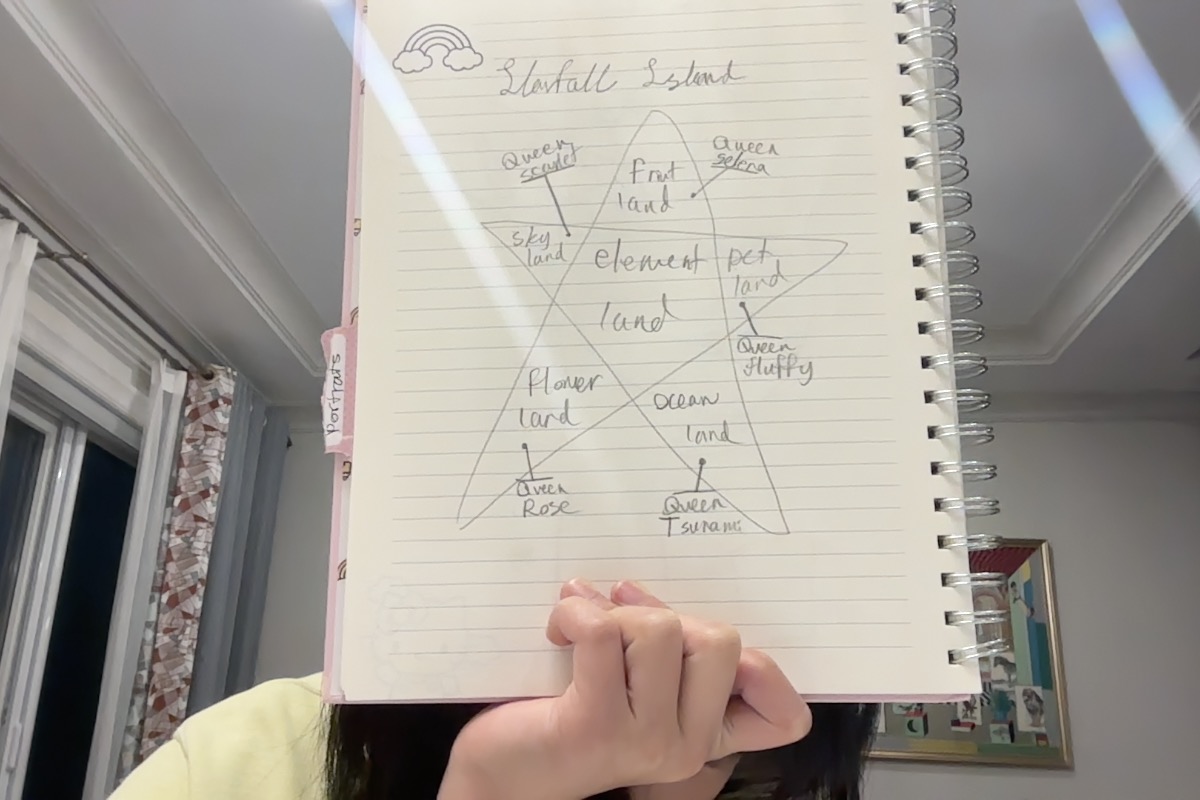 Starfall Island
Queen
scarlet
Queen
selena
fruit
land
sky
land
element
land
pet
land
Queen
fluffy
flower
land
ocean
land
Queen
Rose
Queen
Tsunami
portraits